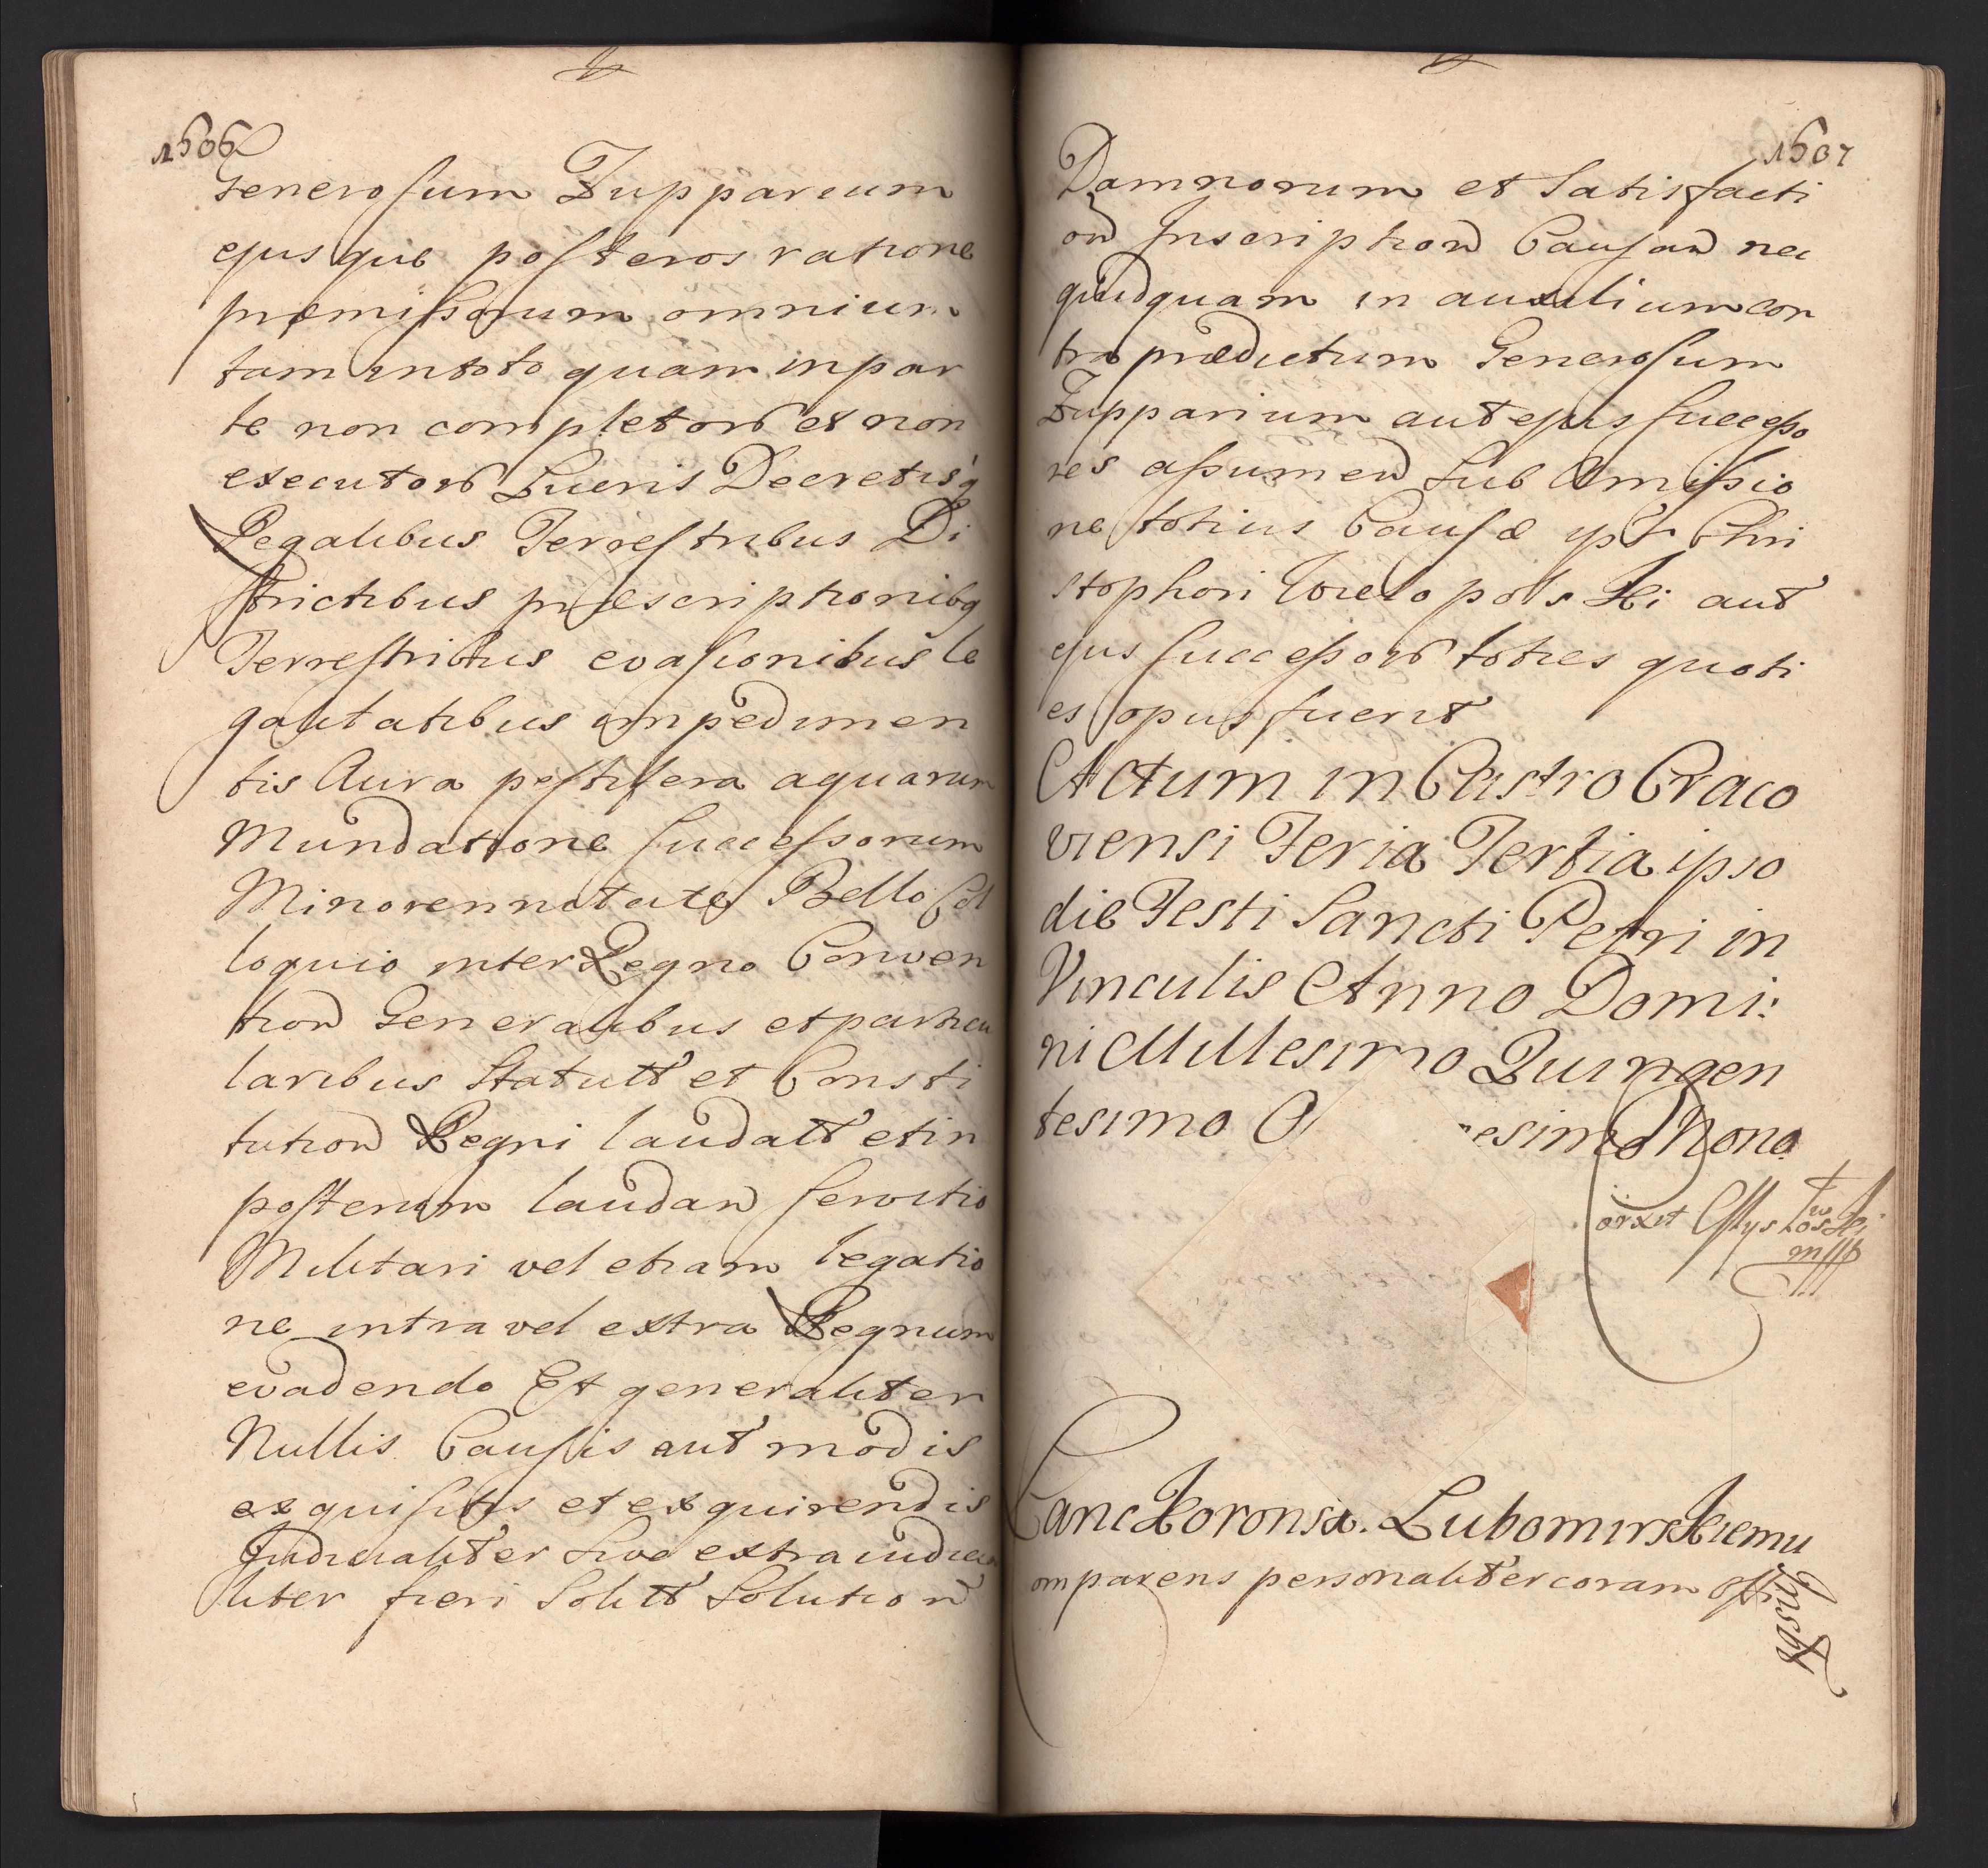 1506
Generosum Zupparium
ejusque posteros ratione
præmissorum omnium
tam in toto quam in par
te non completorũ et non
executorũ Lucris Decretisq́
Regalibus Terrestribus Di
strictibus præscriptionibq
Terrestribus evasionibus le
galitatibus impedimen
tis Aura pestifera aquarum
Mundatione Successorum
Minorennitate Bello Col
loquio inter Regno Conven
tion Generalibus et particu
laribus Statutt et Consti
tution Regni laudatt et in
posterum laudan servitio
Militari vel etiam legatio
ne intra vel extra Regnum
evadendo Et generaliter
Nullis Causis aut modis
exquisitis et exquirendis
Judicialiter sive extra iudicia
liter fieri Solitt Solution
1507
Damnorum et Satisfacti
on Inscription Causan nec
quidquam in auxilium con
tra prædictum Generosum
Zupparium aut ejus successo
res assumen sub Amissio
ne totius Causæ ipst Chri
stophori Wielopolski aut
ejus successorũ toties quoti
es opus fuerit
Actum in Castro Craco
viensi Feria Tertia ipso
die Festi Sancti Petri in
Vinculis Anno Domi:
ni Millesimo Quingen
tesimo O esimo Nono
Lanckoronsa. Lubomirskiemu
omparens personaliter coram Offi
Inscbt